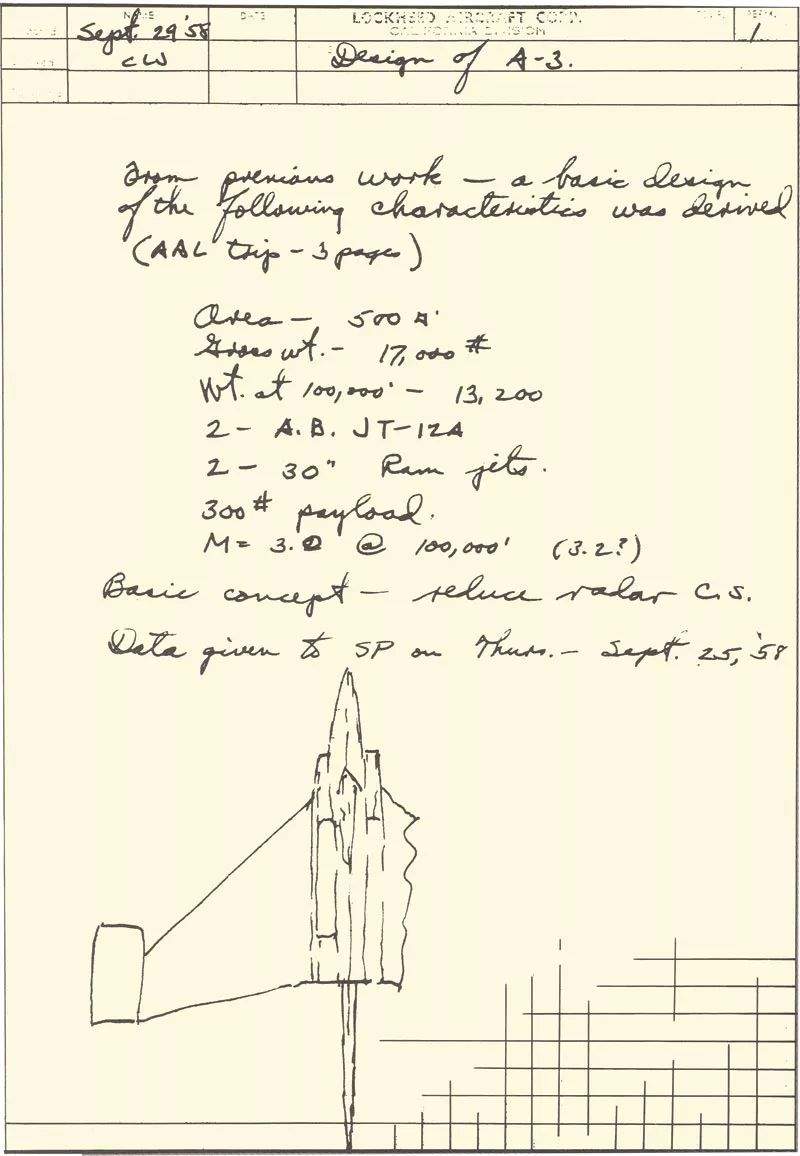 NAME
DATE
LOCKHEED AIRCRAFT CORP.
CALIFORNIA DIVISION
Sept. 29 '58
CW
1
Design of A-3.
From previous work — a basic design
of the following characteristics was derived
(AAL trip - 3 pages)
Area — 500 □'
Gross wt. - 17,000 #
Wt. at 100,000' - 13,200
2 - A.B. JT-12A
2 - 30" Ram jets.
300# payload.
M = 3.0 @ 100,000' (3.2?)
Basic concept — reduce radar C.S.
Data given to SP on Thurs. - Sept. 25, '58